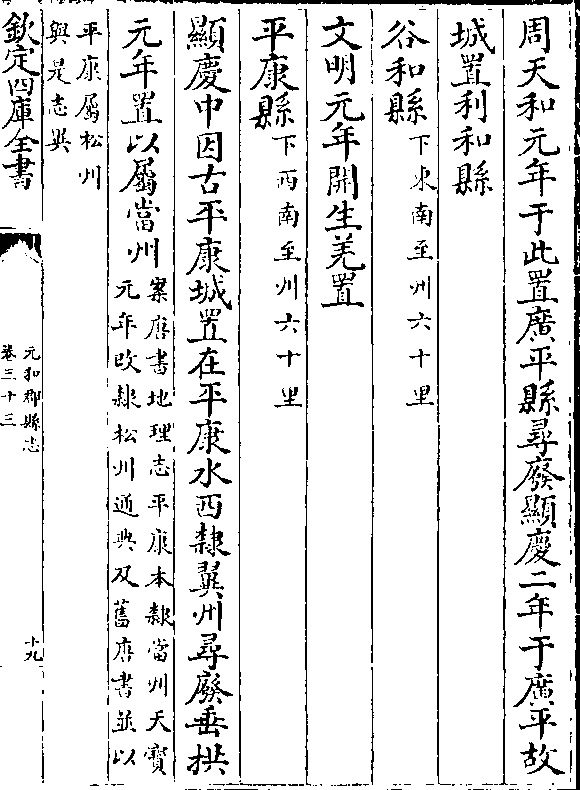 周天和元年于此置廣平縣尋廢顯慶二年于廣平故
城置利和縣
谷和縣下東南至州六十里
文明元年開生羌置
平康縣下西南至州六十里
顯慶中因古平康城置在平康水西隸翼州尋廢垂拱
元年置以屬當州案唐書地理志平康本隸當州天寶
元年改隸松州通典及舊唐書並以
平康屬松州
與是志異
欽定四庫全書
元和郡縣志
卷三十三
十九